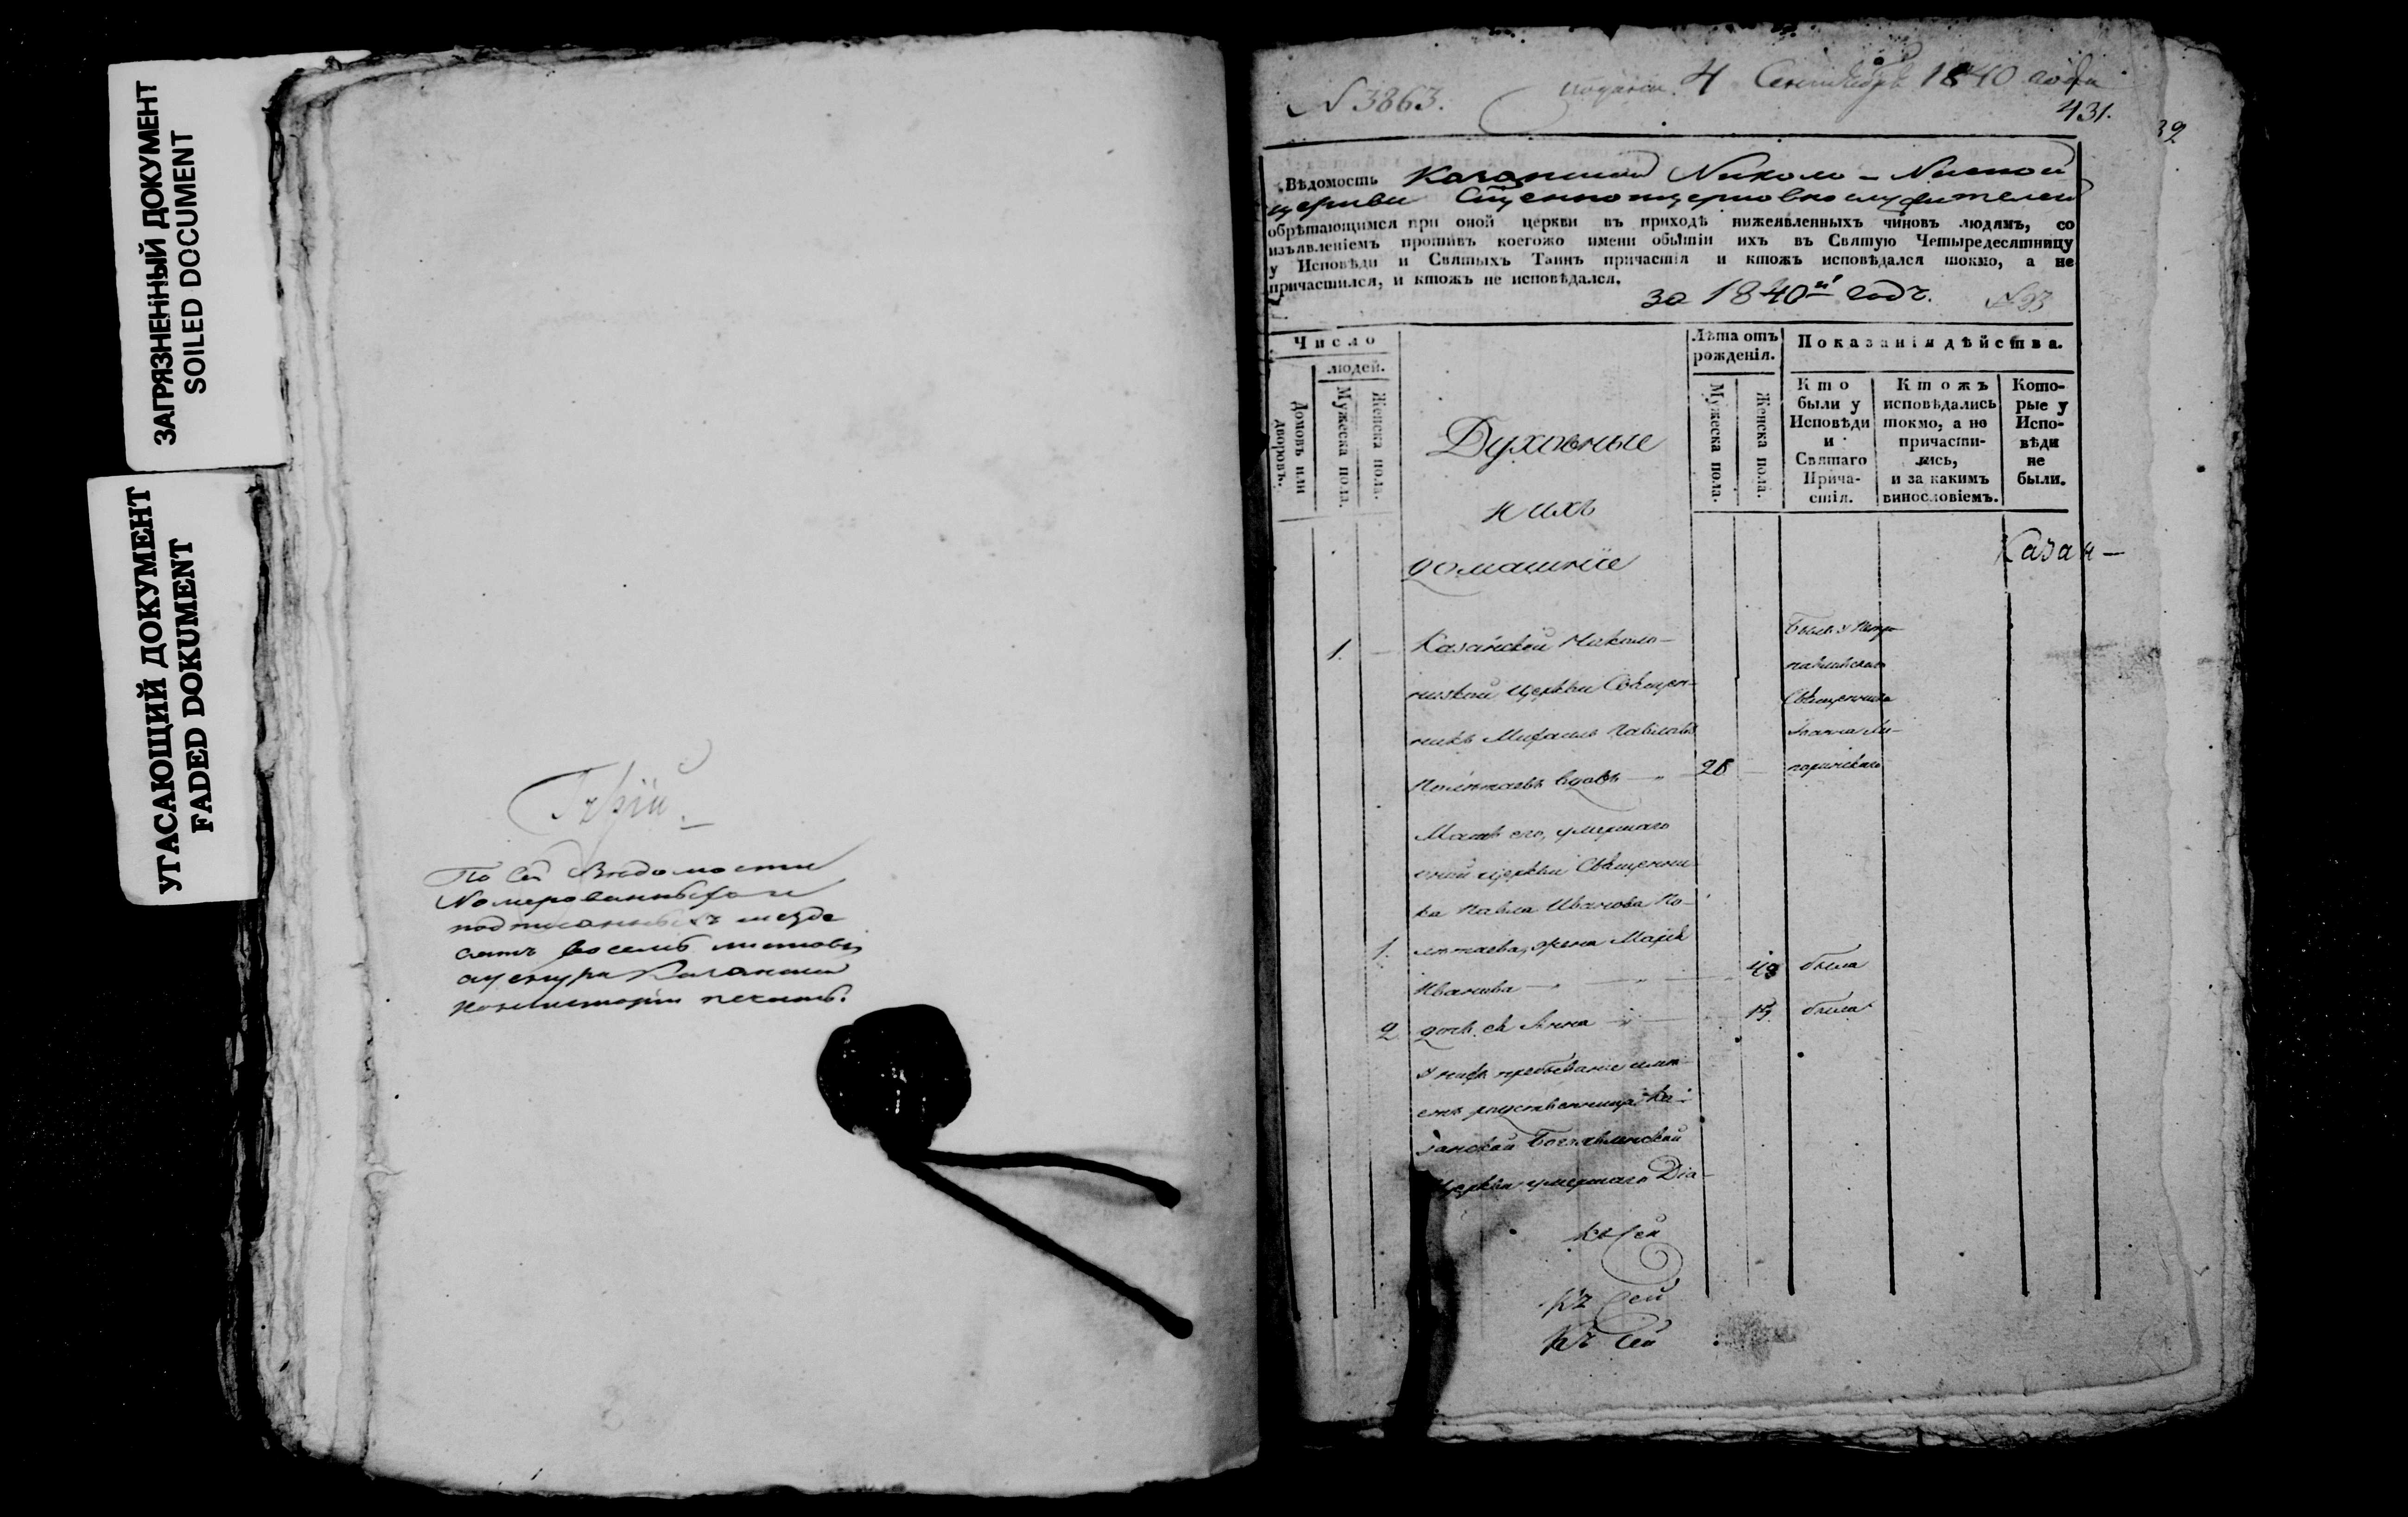 ЗАГРЯЗНЕННЫЙ ДОКУМЕНТ
SOILED DOCUMENT
УГАСАЮЩИЙ ДОКУМЕНТ
FADED DOKUMENT
По сей Ведомости
Номерованныхъ и
подписанныхъ шезде
сятъ восемь листовъ
Казанской
Консисторіи печать.
N 3863. 4 Сентября 1840 года
431.
39
Вѣдомость Казанской Николо-Ниской
церкви Сщеннноцерковнослужителей
обрѣтающимся при оной церкви въ приходѣ нижеявленныхъ чиновъ людямъ, со
изъявленіемъ противъ коегожо имени обытіи ихъ въ Святую Четыредесятницу
у Исповѣди и Святыхъ Таинъ причастія и ктожъ исповѣдался токмо, а не
причастился, и ктожъ не исповѣдался.
за 1840й годъ. N 93
Число
людей.
Домовъ или дворовъ.
Мужеска пола.
Женска пола.
Духовные
и ихъ
домашніе
Лѣта отъ рожденія.
Мужеска пола.
Женска пола.
Показанія дѣйства.
Кто были у Исповѣди и Святаго Причастія.
Ктожъ исповѣдались токмо, а не причастились, и за какимъ винословіемъ.
Которые у Исповѣди не были.
Казан-
1. Казанской Николо-
низкой церкви Священ-
никъ Михаилъ Павловъ
вдовъ 28
Былъ у Петро
павловскаго
Священника
Іоанна
Мать его, умершаго
оной церкви Священни
ка Павла Иванова По-
1. жена Марья
Иванова 49 была
2 дочь ея Анна 15 была
У нихъ пребываніе имѣ-
етъ родственница Ка-
занской Богоявленской
Церкви умершаго Діа-
къ сей
къ сей
къ сей